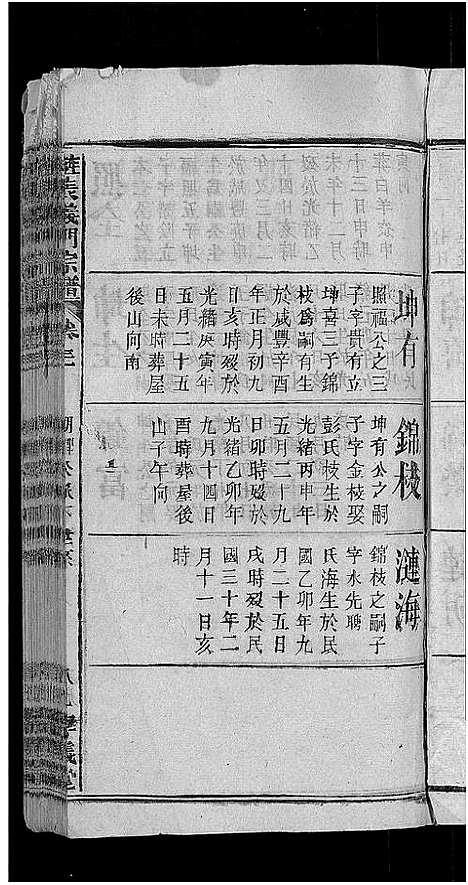 坤有
照福公之三
子字貴有立
坤喜三子錦
枝爲嗣有生
於咸豐辛酉
年正月初九
日亥時殁於
光緒庚寅年
五月二十五
日未時葬屋
後山向南
錦枝
坤有公之嗣
子字金枝娶
彭氏枝生於
光緒丙申年
五月二十九
日卯時殁於
光緒乙卯年
九月十四日
酉時葬屋後
山子午向
漣海
錦枝之嗣子
字水先聘
氏海生於民
國乙卯年九
月二十五日
戌時殁於民
國三十年二
月十一日亥
時
義門宗譜